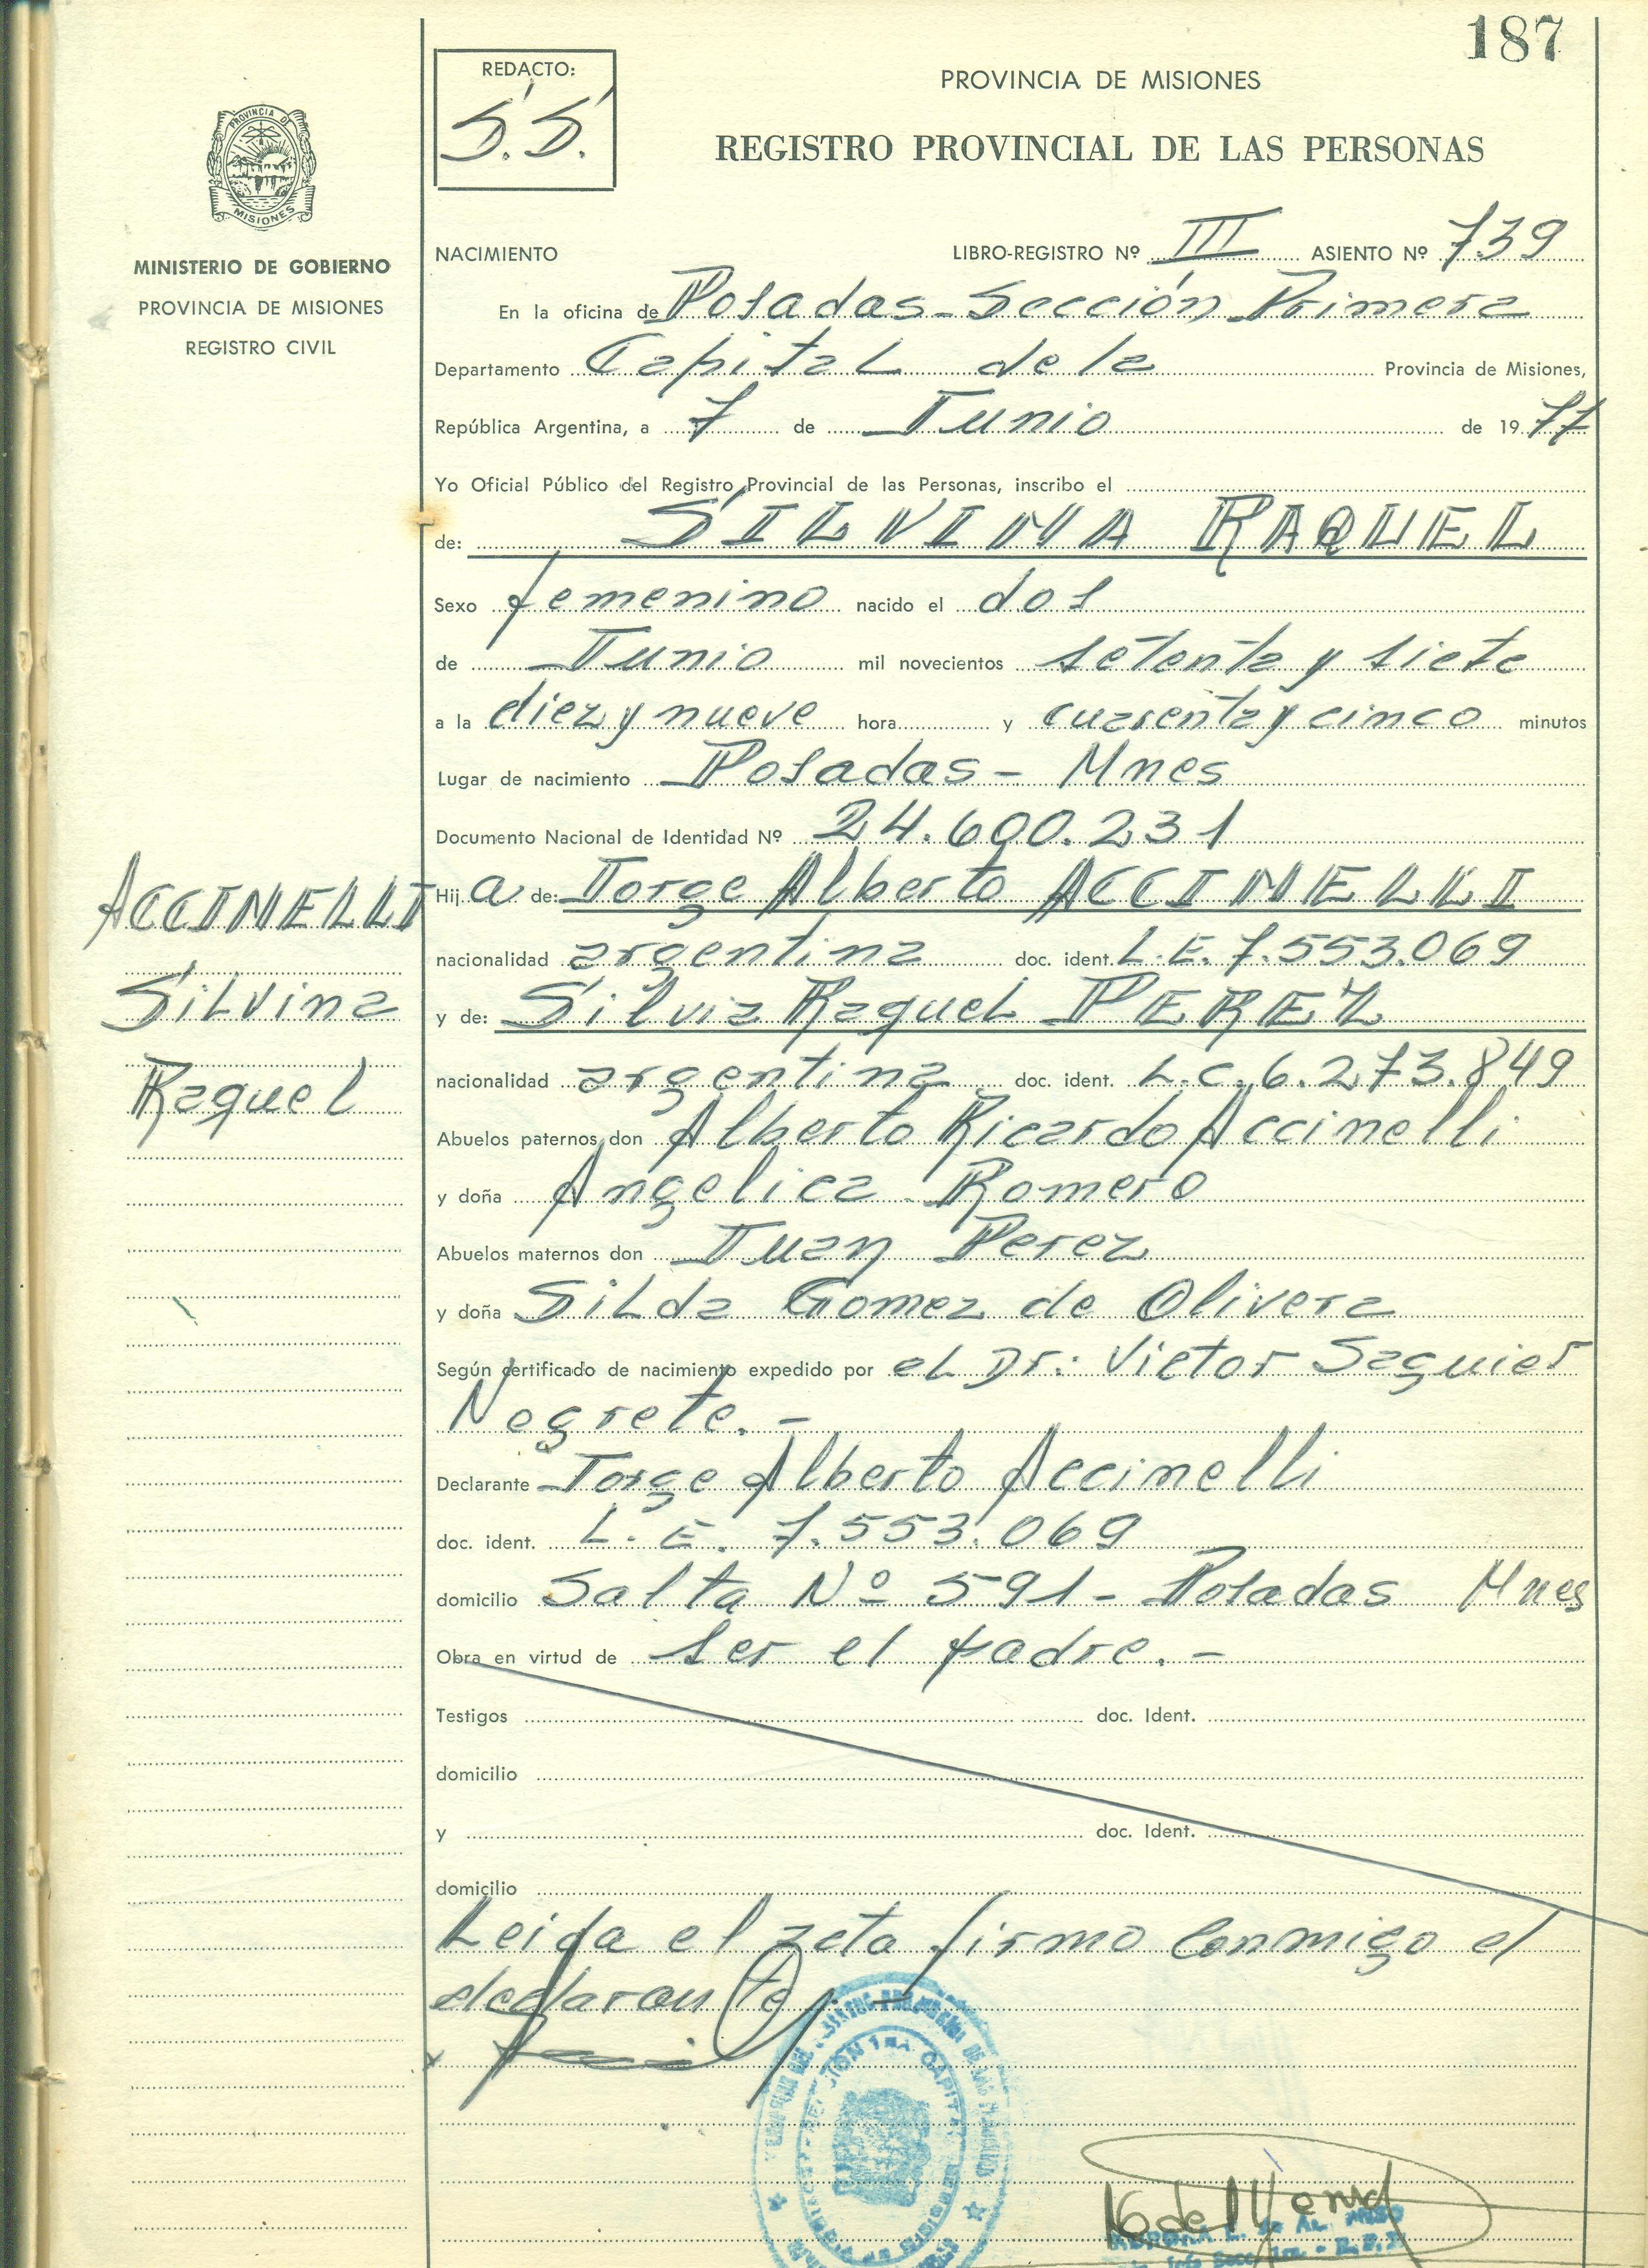 187
REDACTO:
S.S.
PROVINCIA DE MISIONES
REGISTRO PROVINCIAL DE LAS PERSONAS
PROVINCIA DE
MISIONES
MINISTERIO DE GOBIERNO
PROVINCIA DE MISIONES
REGISTRO CIVIL
NACIMIENTO LIBRO-REGISTRO Nº III ASIENTO Nº 739
En la oficina de Posadas - Sección Primera
Departamento Capital de la Provincia de Misiones,
República Argentina, a 7 de Junio de 1977
Yo Oficial Público del Registro Provincial de las Personas, inscribo el
de: SILVINA RAQUEL
Sexo femenino nacido el dos
de Junio mil novecientos setenta y siete
a la diez y nueve hora y cuarenta y cinco minutos
Lugar de nacimiento Posadas - Mnes
Documento Nacional de Identidad Nº 24.600.231
ACCINELLI
Silvina
Raquel
Hij a de: Jorge Alberto ACCINELLI
nacionalidad argentina doc. ident. L.E. 7.553.069
y de: Silvia Raquel PEREZ
nacionalidad argentina doc. ident. L.C. 6.273.849
Abuelos paternos don Alberto Ricardo Accinelli
y doña Angelica Romero
Abuelos maternos don Juan Perez
y doña Silda Gomez de Olivera
Según certificado de nacimiento expedido por el Dr: Victor Saguier
Negrete. -
Declarante Jorge Alberto Accinelli
doc. ident. L. E. 7.553.069
domicilio Salta Nº 591 - Posadas Mnes
Obra en virtud de ser el padre. -
Testigos doc. Ident.
domicilio
y doc. Ident.
domicilio
Leida el acta firmo conmigo el
declarante. -